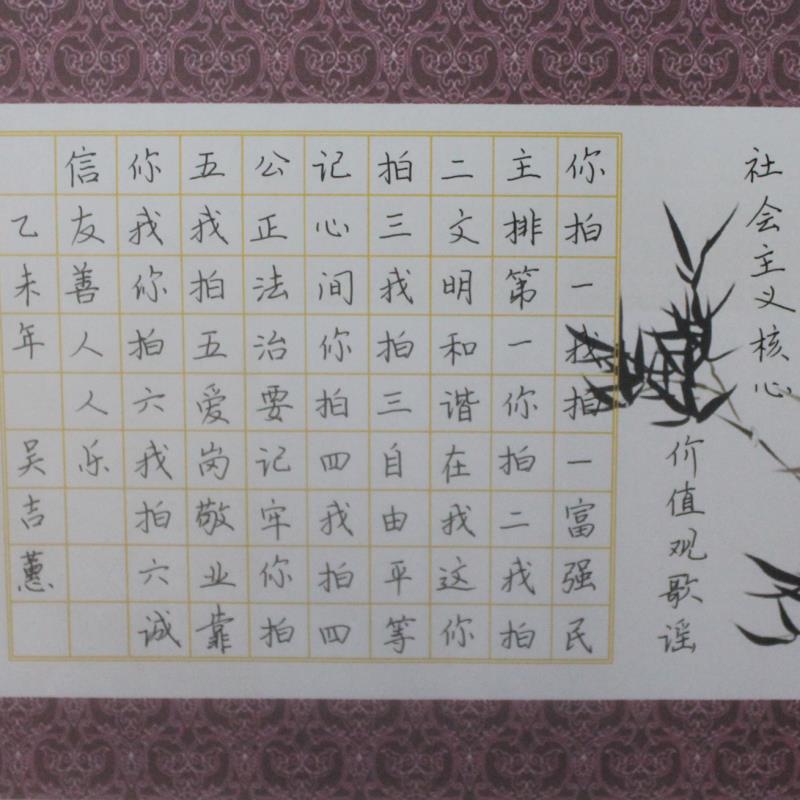 社会主义核心
价值观歌谣
你拍一我拍一富强民
主排第一你拍二我拍
二文明和谐在我这你
拍三我拍三自由平等
记心间你拍四我拍四
公正法治要记牢你拍
五我拍五爱岗敬业靠
你我你拍六我拍六诚
信友善人人乐
乙未年 吴吉蕙